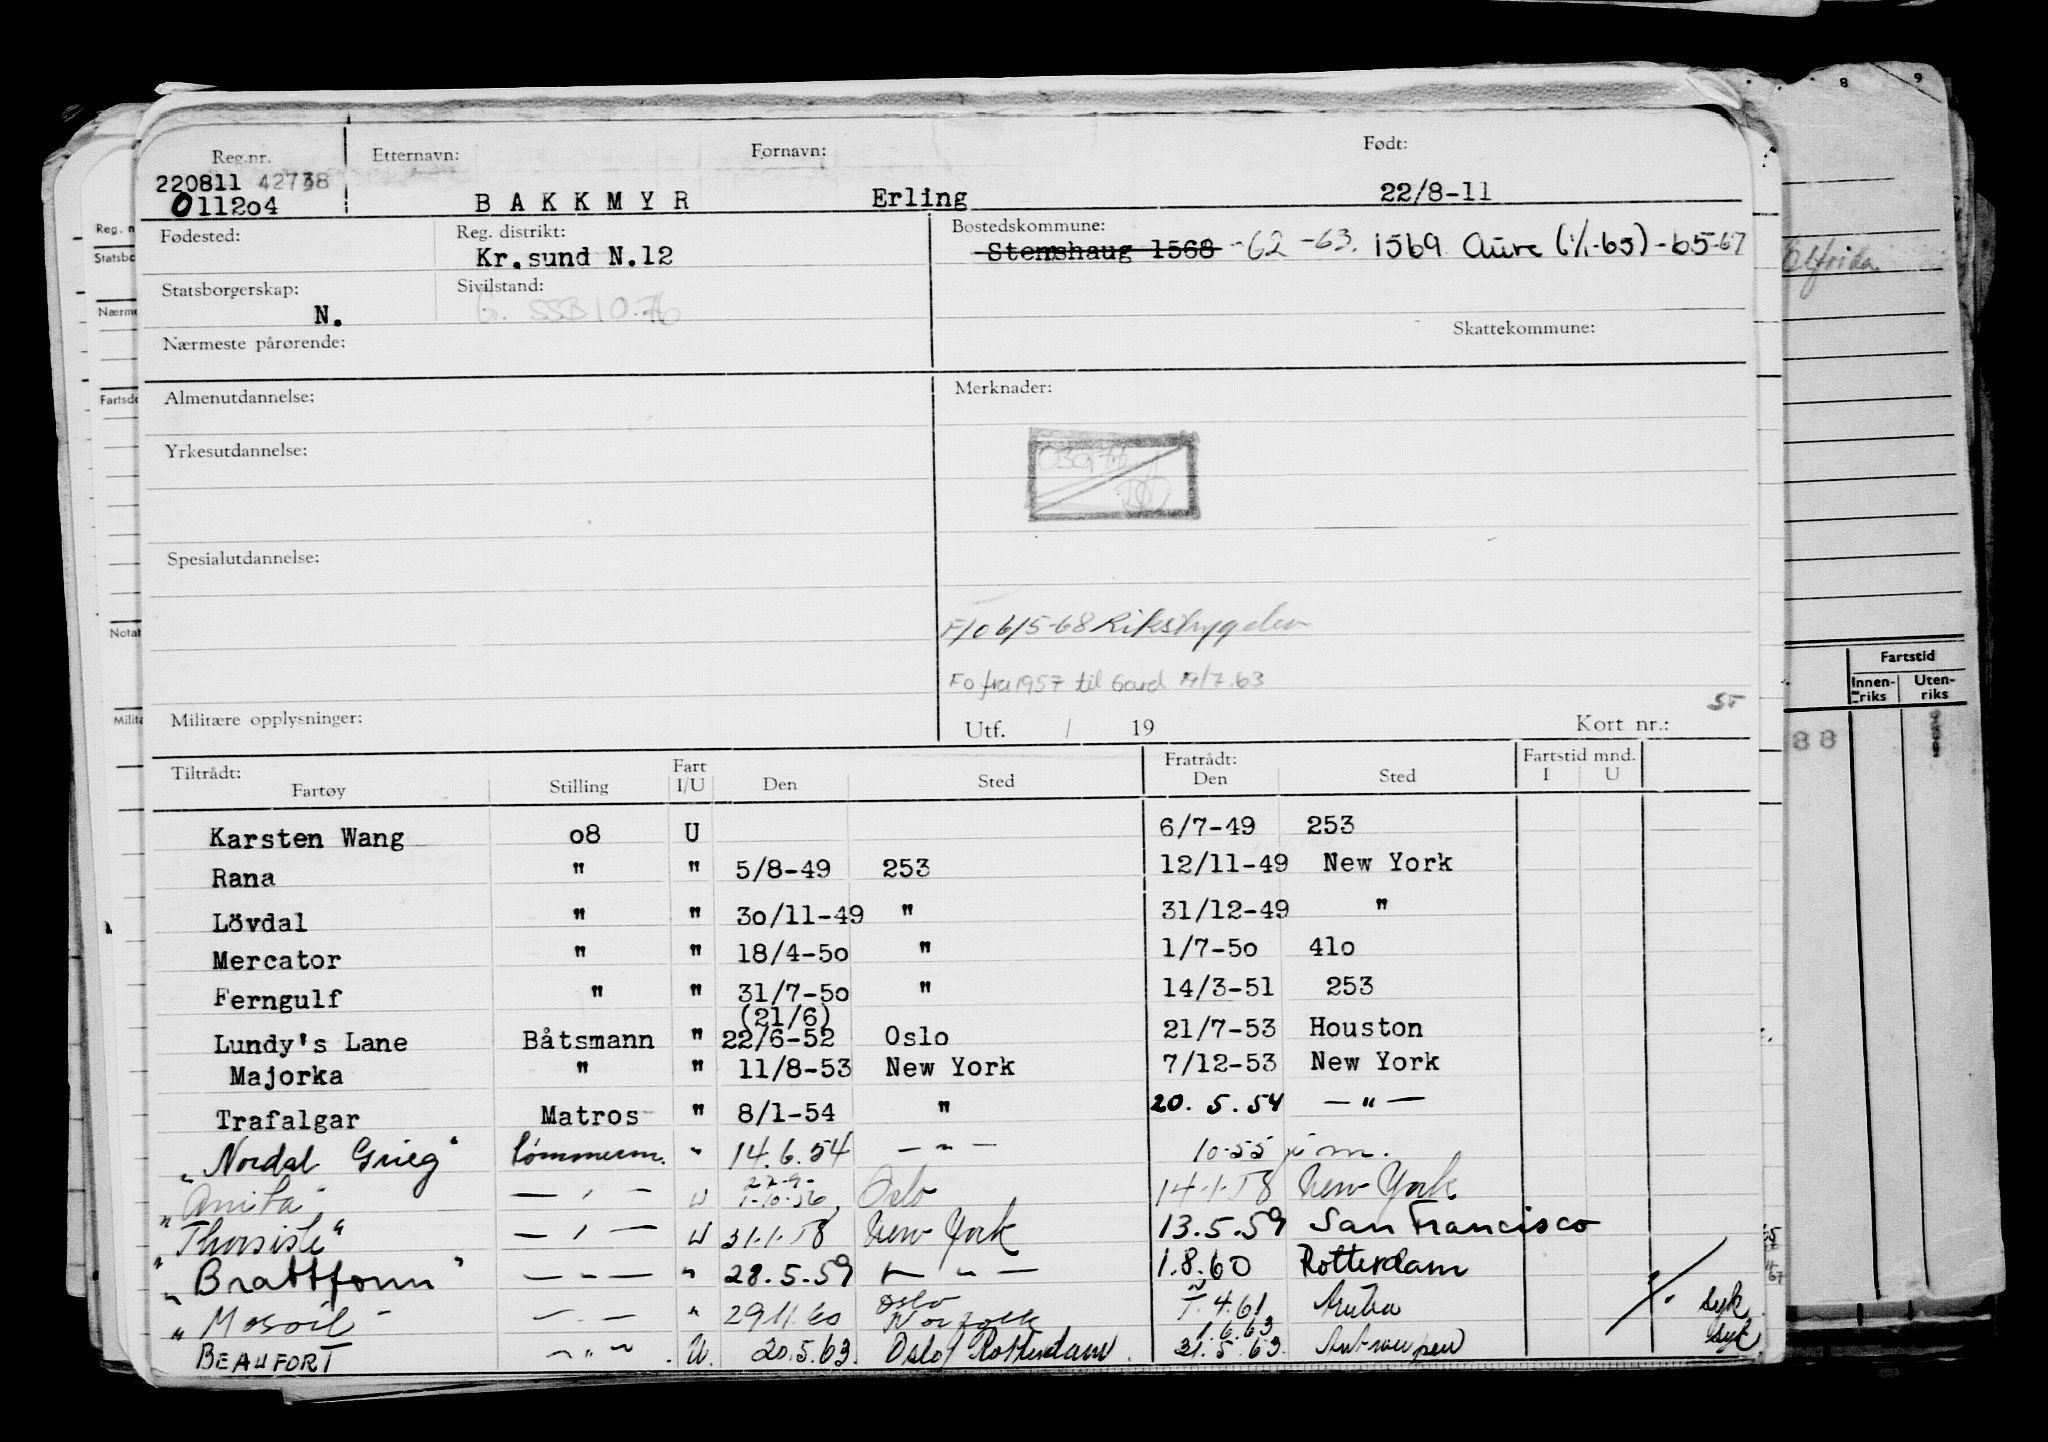 Reg.nr. Etternavn: Fornavn: Født:
220811 42738
011204 BAKKMYR Erling 22/8-11
Fødested: Reg. distrikt: Bostedskommune:
Kr.sund N.12 Stemshaug 1568 -62 -63. 1569 Aure (1/1-65) -65-67
Statsborgerskap: Sivilstand:
N. G. SSB 10.76
Nærmeste pårørende: Skattekommune:
Almenutdannelse: Merknader:
Yrkesutdannelse:
Spesialutdannelse:
F/o 6/5-68 Rikstrygden
Fo fra 1957 til Gard /7.63
Militære opplysninger: Utf. / 19 Kort nr.:
Tiltrådt: Fart Fratrådt: Fartstid mnd.
Fartøy Stilling I/U Den Sted Den Sted I U
Karsten Wang o8 U 6/7-49 253
Rana " " 5/8-49 253 12/11-49 New York
Lövdal " " 3o/11-49 " 31/12-49 "
Mercator " " 18/4-5o " 1/7-5o 41o
Ferngulf " " 31/7-5o " 14/3-51 253
(21/6)
Lundy's Lane Båtsmann " 22/6-52 Oslo 21/7-53 Houston
Majorka " " 11/8-53 New York 7/12-53 New York
Trafalgar Matros " 8/1-54 " 20.5.54 — " —
"Nordal Grieg" Tømmerm. " 14.6.54 — " — 10-55
27-9-
"Anita" — " — U 1-10-56, Oslo 14.1.58 New York
"Thorsisle" — " — U 31.1.58 New York 13.5.59 San Francisco
"Brattfonn" — " — " 28.5.59 — " — 1.8.60 Rotterdam
"Mosoil" — " — " 29.11.60 Oslo Norfolk 4.61 Aruba syk
1.6.63
BEAUFORT — " — U. 20.5.63. Oslo/Rotterdam 31.5.63 Antwerpen syk
Reg. n
Statsbo
Nærme
Fartsdo
Notat
Milita
8 9
Elfrida
Fartstid
Innenriks Utenriks
88